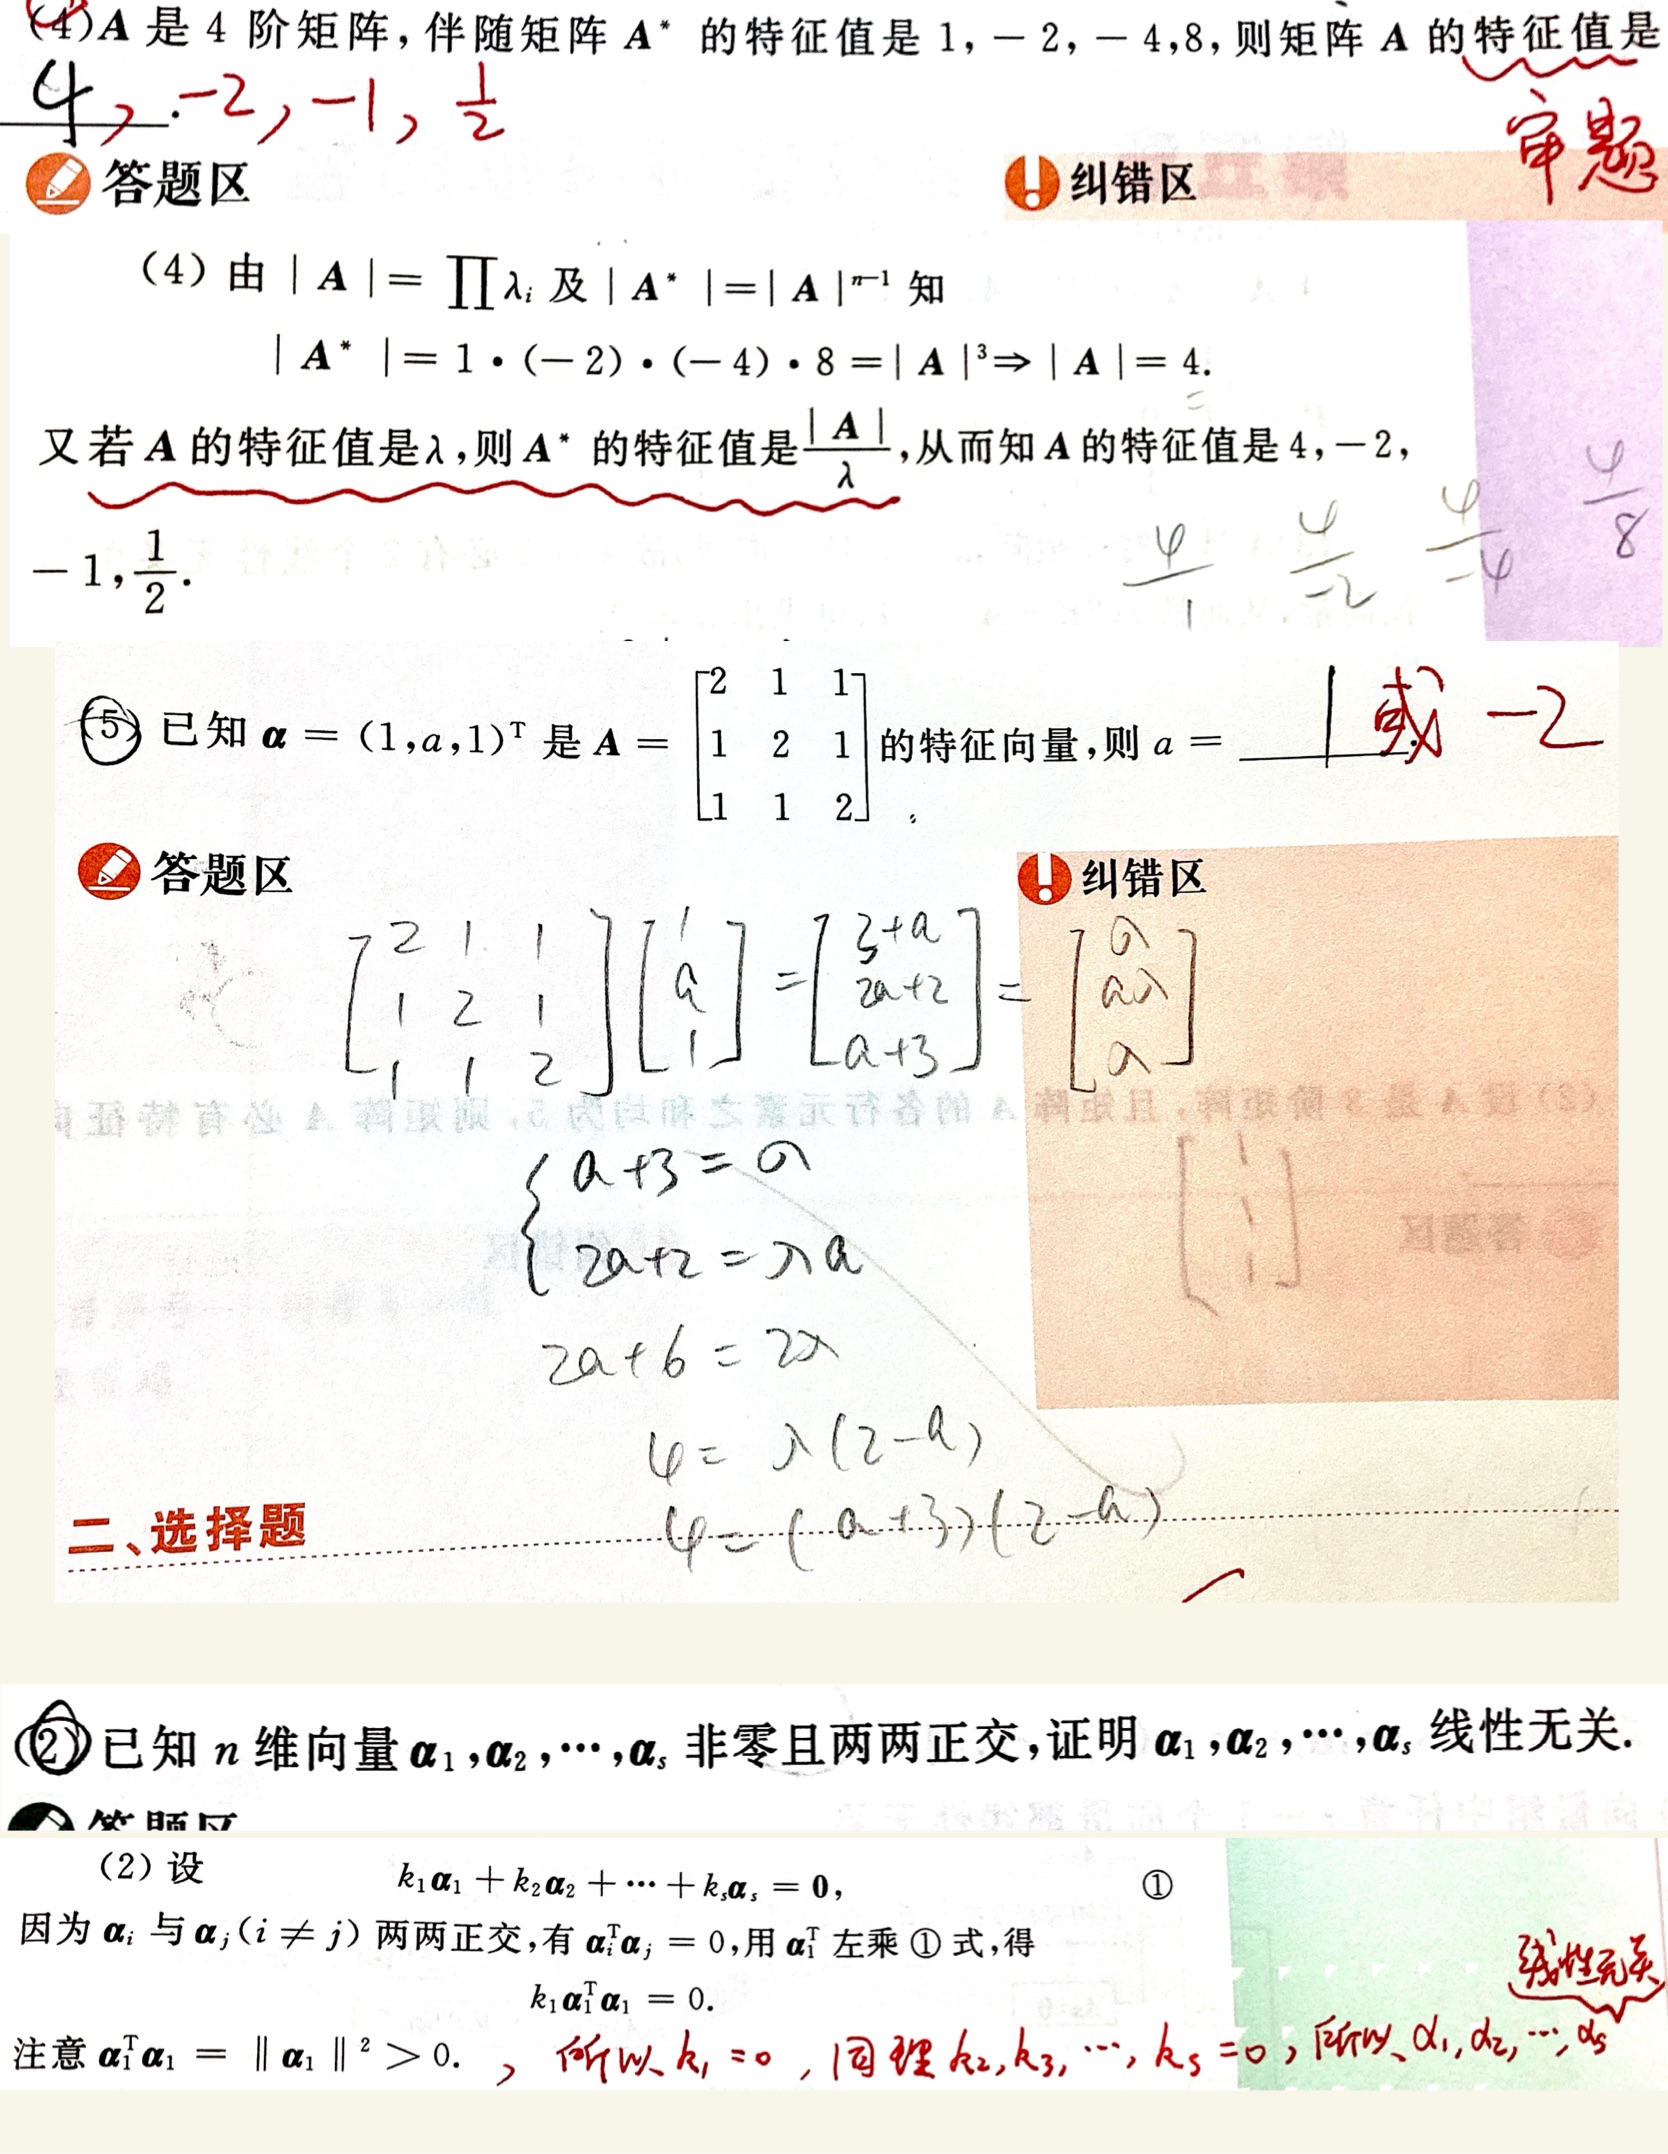 (4)A 是 4 阶矩阵,伴随矩阵 A* 的特征值是 1,-2,-4,8,则矩阵 A 的特征值是
4, -2, -1, 1/2
审题
答题区
纠错区
(4) 由 |A| = ∏λi 及 |A*| = |A|^(n-1) 知
|A*| = 1·(-2)·(-4)·8 = |A|³ ⇒ |A| = 4.
又若 A 的特征值是λ,则 A* 的特征值是 |A|/λ,从而知 A 的特征值是 4,-2,
-1, 1/2.
4/1 4/-2 4/-4 4/8
(5) 已知 α = (1,a,1)ᵀ 是 A = [2 1 1; 1 2 1; 1 1 2] 的特征向量,则 a = 1 或 -2
答题区
纠错区
[2 1 1; 1 2 1; 1 1 2] [1; a; 1] = [3+a; 2a+2; a+3] = [λ; aλ; λ]
[1; 1; 1]
{ a+3 = λ
2a+2 = λa
2a+6 = 2λ
4 = λ(2-a)
4 = (a+3)(2-a)
二、选择题
(2) 已知 n 维向量 α₁,α₂,⋯,αs 非零且两两正交,证明 α₁,α₂,⋯,αs 线性无关.
答题区
(2) 设
k₁α₁ + k₂α₂ + ⋯ + ksαs = 0, ①
因为 αi 与 αj(i ≠ j) 两两正交,有 αiᵀαj = 0,用 α₁ᵀ 左乘 ① 式,得
k₁α₁ᵀα₁ = 0.
注意 α₁ᵀα₁ = ‖α₁‖² > 0. , 所以 k₁=0 , 同理 k₂,k₃,⋯,ks=0, 所以 α₁,α₂,⋯,αs
线性无关